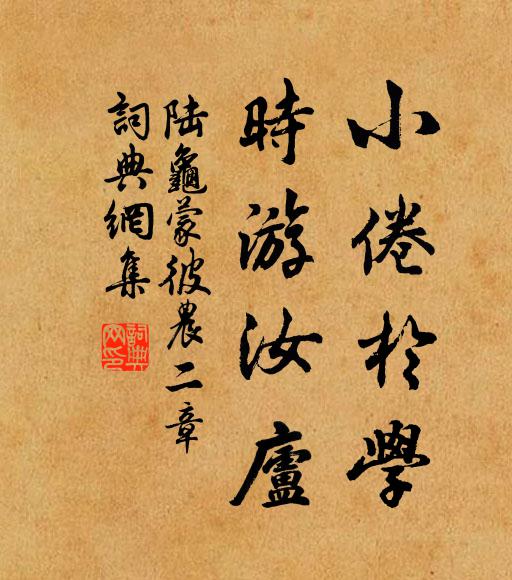 小倦於學
時游汝廬
陸龜蒙彼農二章
詞典網集
詞典網印